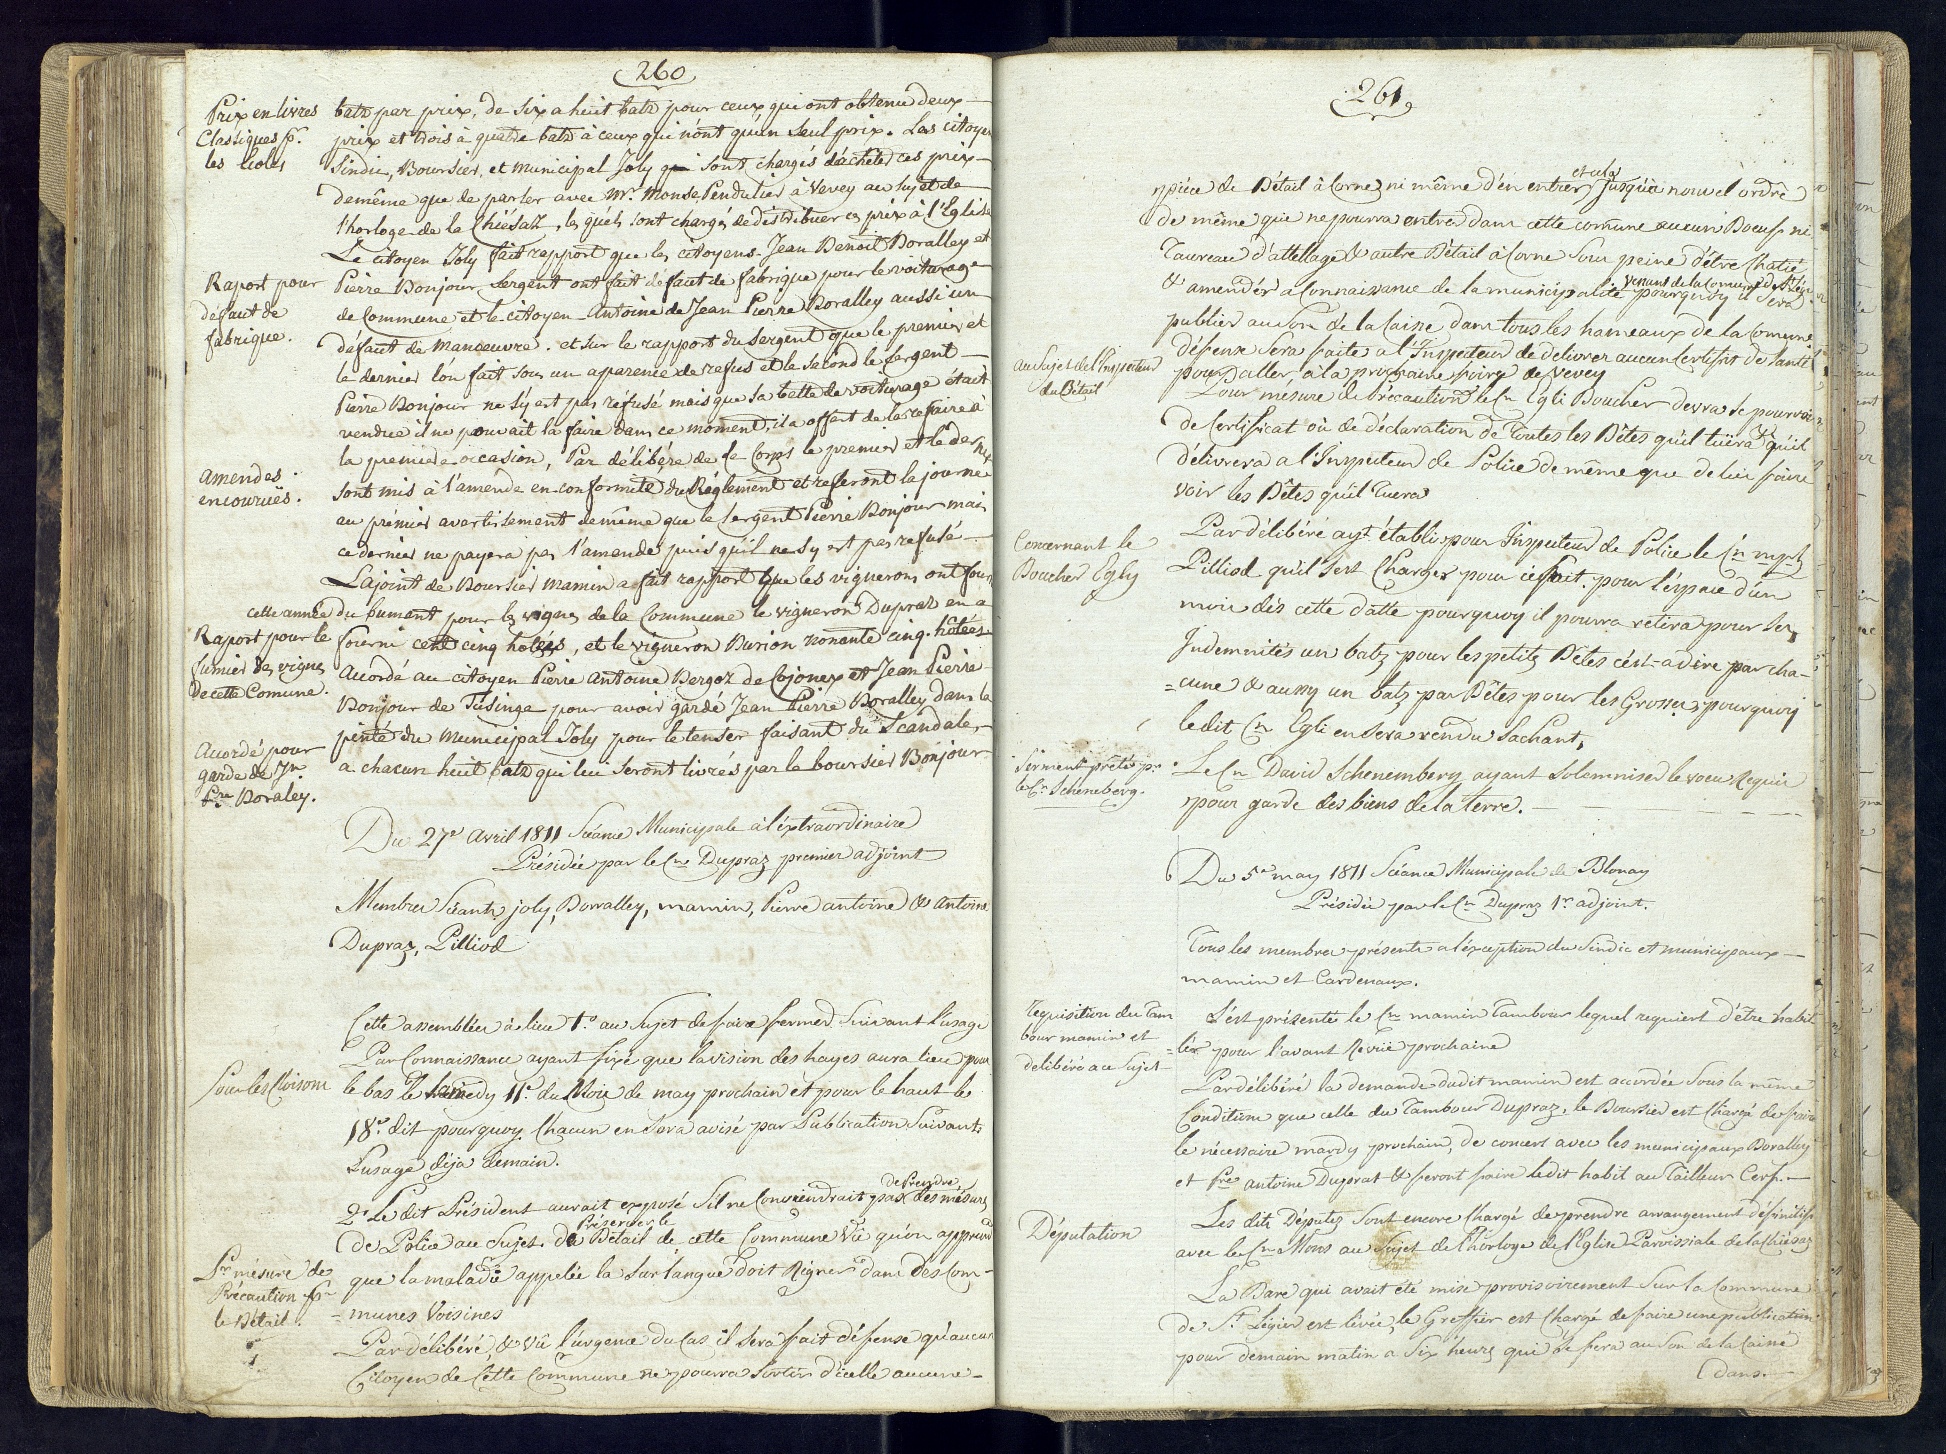 260
Prix en livres
Classiques pr.
les Ecoles
batz par prix, de Six a huit batz pour ceux qui ont obtenu deux
prix et trois à quatre batz à ceux qui n'ont qu'un Seul prix. Les citoyen
Sindic, Boursier, et municipal Joly qui sont chargés d'achêter ces prix
demême que de parler avec Mr. Monse Pendulier à Vevey au Sujet de
l'horloge de la Chiésaz, les quels sont chargés de distribuer ces prix à l'Eglise
Raport pour
defaut de
fabrique.
Le citoyen Joly fait rapport que les citoyens Jean Benoit Boralley et
Pierre Bonjour Sergent ont fait défaut de fabrique pour le voiturage
de Commune et le citoyen Antoine de Jean Pierre Boralley aussi un
défaut de manoeuvre. et sur le rapport du Sergent que le premier et
le dernier l'on fait sous un aparence de refus et le second le Sergent
Pierre Bonjour ne s'y est pas réfusé mais que sa bette de voiturage était
vendue il ne pouvait la faire dans ce moment, il a offert de la refaire à
la premiére occasion, Par délibéré de ce Corps le premier et le dernier
amendes
encouruës.
sont mis à l'amende en conformité du Réglement et referont la journée
au prémier avertissement demême que le Sergent Pierre Bonjour mais
ce dernier ne payera pas l'amende puis qu'il ne sy est pas refusé
Lajoint de Boursier mamin a fait rapport que les vignerons ont fourni
cette année du fument pour les vignes de la Commune le vigneron Dupraz en a
Raport pour le
fumier des vignes
de cette Comune.
fourni cent cinq hotées, et le vigneron Burion nonante cinq hôtées
Acordé au citoyen Pierre Antoine Bergoz de Cojonex et Jean Pierre
Bonjour de Tusinge pour avoir gardé Jean Pierre Boralley dans la
pinte du Municipal Joly pour le tenser faisant du Scandale,
Acordé pour
garde de Jn
Pre Boraley.
a chacun huit batz qui leur seront livrés par le boursier Bonjour
Du 27e Avril 1811 Séance Municipale à l'éxtraordinaire
Présidée par le Cen Dupraz premier adjoint
Membres Séants joly, Borralley, mamin, Pierre antoine & Antoine
Dupraz, Pilliod
Cette assemblée à lieu 1o. au Sujet de faire fermer Suivant l'usage
Par Connaissance ayant fixé que la vision des hayes aura lieu pour
Pour les Cloisons
le bas le Samedy 11e. du Mois de may prochain et pour le haut le
18e. dit pourquoy Chacun en Sera avisé par Publication Suivant
l'usage déja demain.
2o Le dit Président aurait exposé S'il ne Conviendrait pas de Prendre des mésures
de Police au Sujet de Préserver le Bétail de cette Commune Vû qu'on apprend
Pr mésure de
Précaution pr
le Bétail.
que la maladie appelée la Sur langue doit Régner dans des Com=
=munes Voisines
Par délibéré, & vû l'urgence du Cas il Sera fait défense qu'aucun
Citoyen de Cette Commune ne pourra Sortir d'icelle aucune
261
piéce de Bétail à Corne, ni même d'en entrer et cela Jusqu'à nouvel ordre
de même que ne pourra entrer dans cette comune aucun Boeuf ni
Taureau d'attellage & autre Bétail à Corne Sous peine d'être Chatié
& amendér a Connaissance de la municipalité venant de la Comune de St Légr pourquoy il Sera
publier au Son de la Caisse dans tous les hameaux de la Comune
au Sujet de l'Inspecteur
du Bétail
défense Sera faite a l'Inspecteur de délivrer aucun Certifict de Santé
pour aller à la prochaine foire de Vevey
Pour mésure de Précaution le Cn Egli Boucher devra se pourvoir
de Certificat où de déclaration de Toutes les Bêtes qu'il tüera & qu'il
délivrera a l'Inspecteur de Police de même que de lui faire
voir les Bêtes qu'il Tuera
Concernant le
Boucher Egly
Par délibéré ayt établi pour Inspecteur de Police le Cn mpl
Pilliod qu'il sest Charger pour ce fait. pour l'éspace d'un
mois dès cette datte pourquoy il pourra rétirer pour Ses
Indemnités un batz pour les petits Bêtes c'est-adire par cha=
=cune & aussy un batz par Bêtes pour les Grosses, pourquoy
le dit Cn Egli en Sera rendu Sachant,
Serment prêté pr
le Cn Scheneberg.
Le Cn David Schenemberg ayant Solemniser le voeu Requis
pour garde des biens de la terre.
Du 5e may 1811 Séance Municipale de Blonay
Présidée par le Cn Dupraz 1r adjoint.
Tous les membres présents a l'éxception du Sindic et municipaux
mamin et Cardenaux.
Requisition du Tam
bour mamin et
deliberé a ce Sujet
S'est présenté le Cn mamin Tambour lequel requiert d'être habil
=lér pour l'avant Revüe prochaine
Par délibéré la demande dudit mamin est accordée Sous la même
Condition que celle du Tambour Dupraz, le Boursier est Chargé de faire
le nécessaire mardy prochain, de concert avec les municipaux Boralley
et Pre antoine Duprat & feront faire ledit habit au Tailleur Cerf.
Députation
Les dits Députez Sont encore Chargé de prendre arrangement définitif
avec le Cn Mons au Sujet de l'horloge de l'Eglise Paroissiale de la Chiésaz
La Bare qui avait été mise provisoirement Sur la Commune
de St. Légier est levée, le Greffier est Chargé de faire une publication
pour demain matin a Six heures qui se fera au Son de la Caisse
dans.